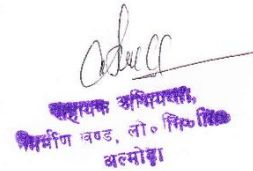 सहायक अभियन्ता,
निर्माण खण्ड, लो० नि० वि०
अल्मोड़ा